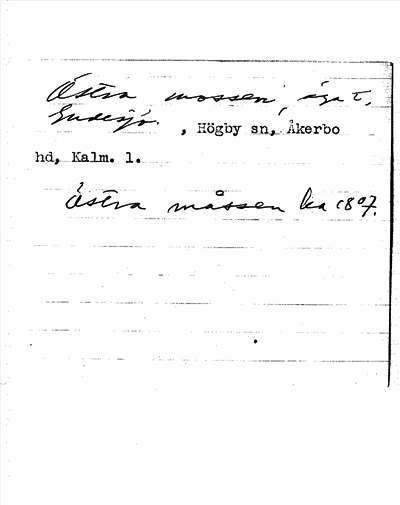 Östra mossen, äga t.
Gudesjö. , Högby sn, Åkerbo
hd, Kalm. l.
Östra måssen lka 1807.